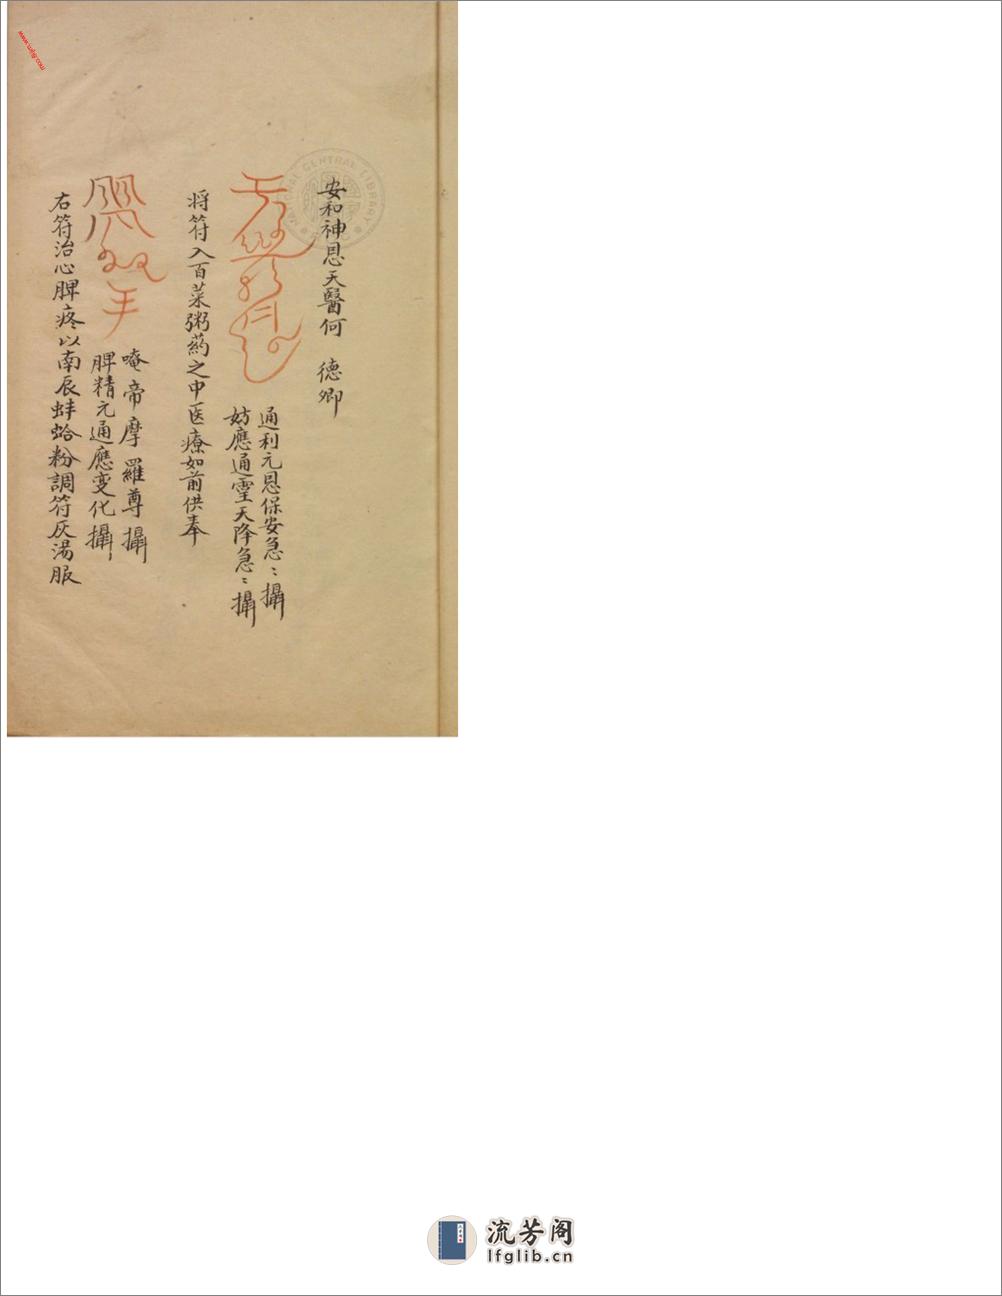 安和神恩天醫何　德卿
通利元恩保安急〻攝
妨應通霊天降急〻攝
将符入百菜粥药之中医療如前供奉
唵帝摩羅尊攝
脾精元通應变化攝
右符治心脾疼以南辰蚌蛤粉調符灰湯服
NATIONAL CENTRAL LIBRARY
www.lfglib.com
流芳阁
lfglib.cn